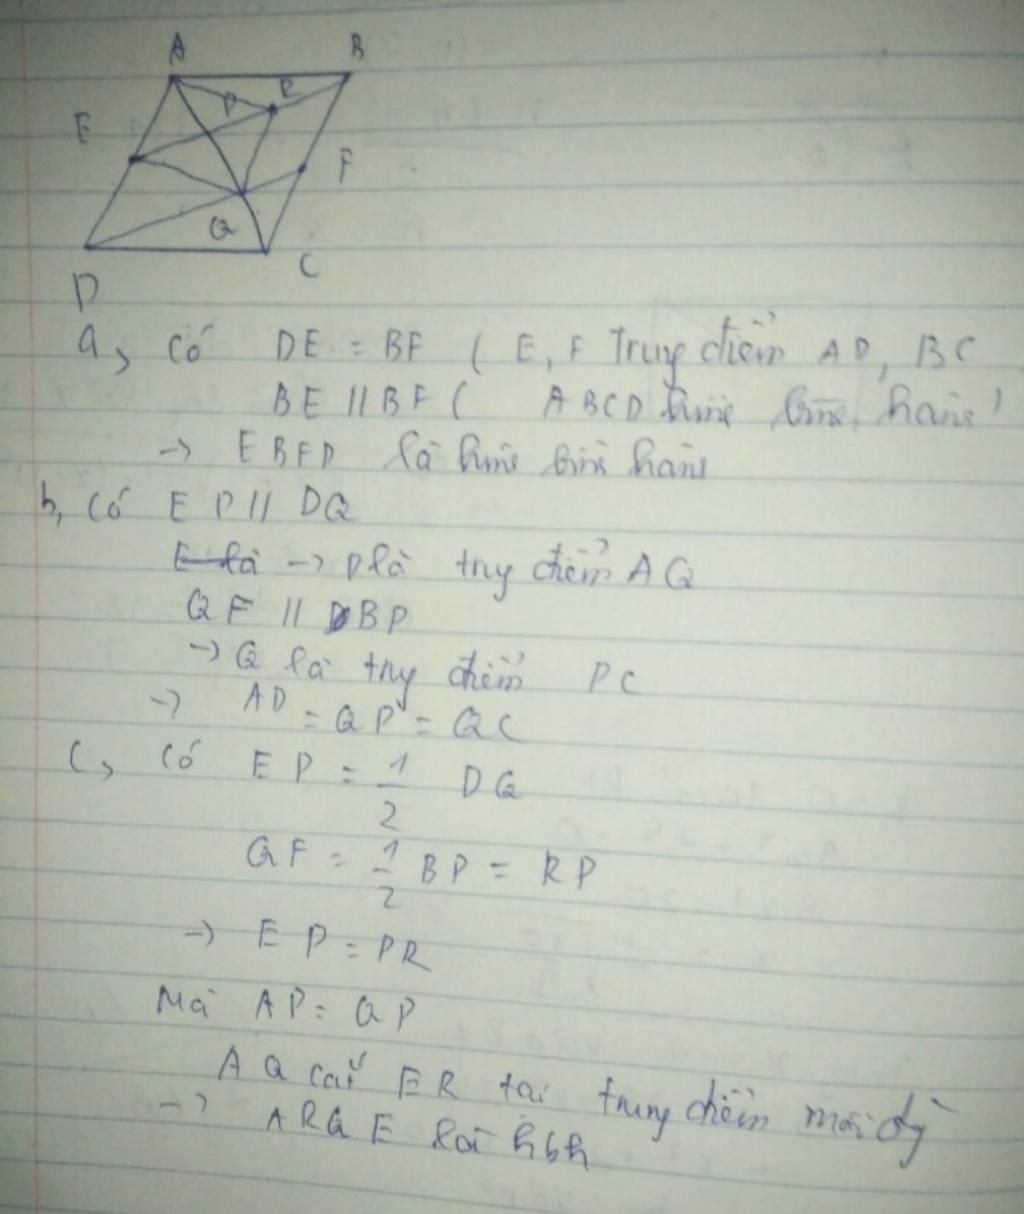 A B
P R
E
F
Q
D C
a, Có DE = BF ( E, F trung điểm AD, BC
BE // BF ( ABCD hình bình hành )
-> EBFD là hình bình hành
b, Có EP // DQ
E là -> P là trung điểm AQ
QF // BP
-> Q là trung điểm PC
-> AP = QP = QC
c, Có EP = 1/2 DQ
QF = 1/2 BP = RP
-> EP = PR
Mà AP = QP
AQ cắt ER tại trung điểm mỗi đg
-> ARQE là hbh